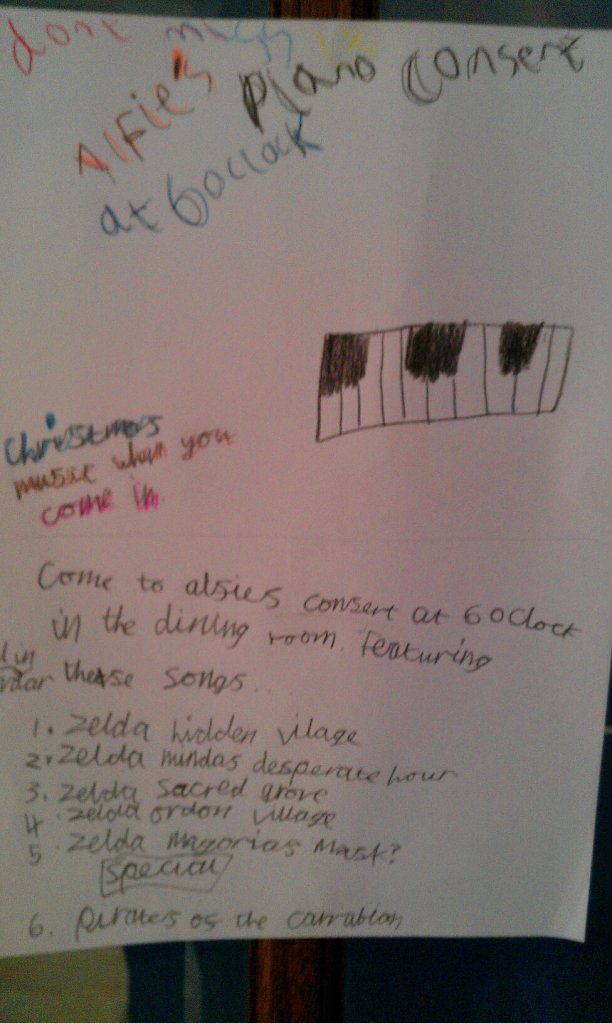 dont miss it
Alfie's Piano Consert
at 6 oclock
Christmas
music when you
come in.
Come to alfies consert at 6 oclock
in the dining room. Featuring
in
these songs..
1. Zelda hidden vilage
2. Zelda mindas desperate hour
3. Zelda Sacred grove
4. Zelda ordon village
5. Zelda magorias Mask?
Special
6. pirates of the carrabian